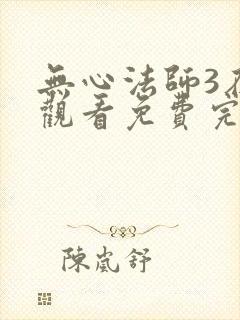 無心法師3
觀看免費完
陳嵐舒